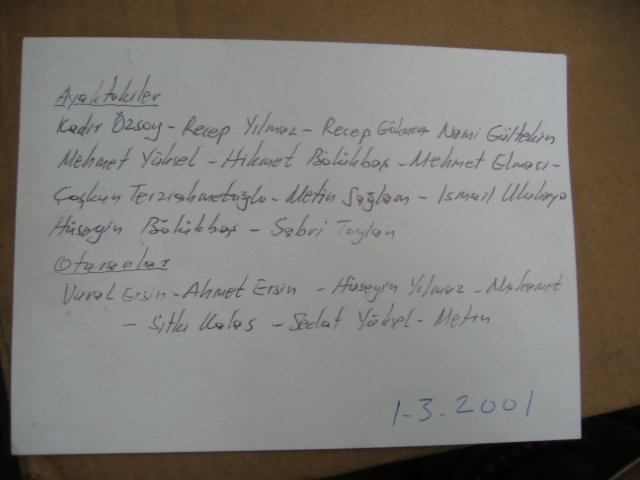 Ayaktakiler
Kadir Özsoy - Recep Yılmaz - Recep Gökmen Nami Gültekin
Mehmet Yüksel - Hikmet Bölükbaş - Mehmet Elmacı -
Coşkun Terziahmetoğlu - Metin Sağlam - İsmail Ulukaya
Hüseyin Bölükbaş - Sabri Toylan
Oturanlar
Vural Ersin - Ahmet Ersin - Hüseyin Yılmaz - Mehmet
- Sıtkı Kalas - Sedat Yüksel - Metin
1-3.2001